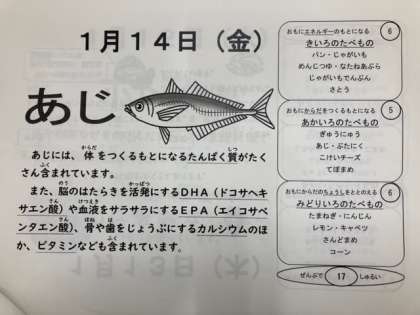 1月14日（金）
あじ
あじには、体をつくるもとになるたんぱく質がたく
さん含まれています。
また、脳のはたらきを活発にするDHA（ドコサヘキ
サエン酸）や血液をサラサラにするEPA（エイコサペ
ンタエン酸）、骨や歯をじょうぶにするカルシウムのほ
か、ビタミンなども含まれています。
おもにエネルギーのもとになる
6
きいろのたべもの
パン・じゃがいも
めんじつゆ・なたねあぶら
じゃがいもでんぷん
さとう
おもにからだをつくるもとになる
5
あかいろのたべもの
ぎゅうにゅう
あじ・ぶたにく
こけいチーズ
てぼまめ
おもにからだのちょうしをととのえる
6
みどりいろのたべもの
たまねぎ・にんじん
レモン・キャベツ
さんどまめ
コーン
ぜんぶで 17 しゅるい
1月13日（木）